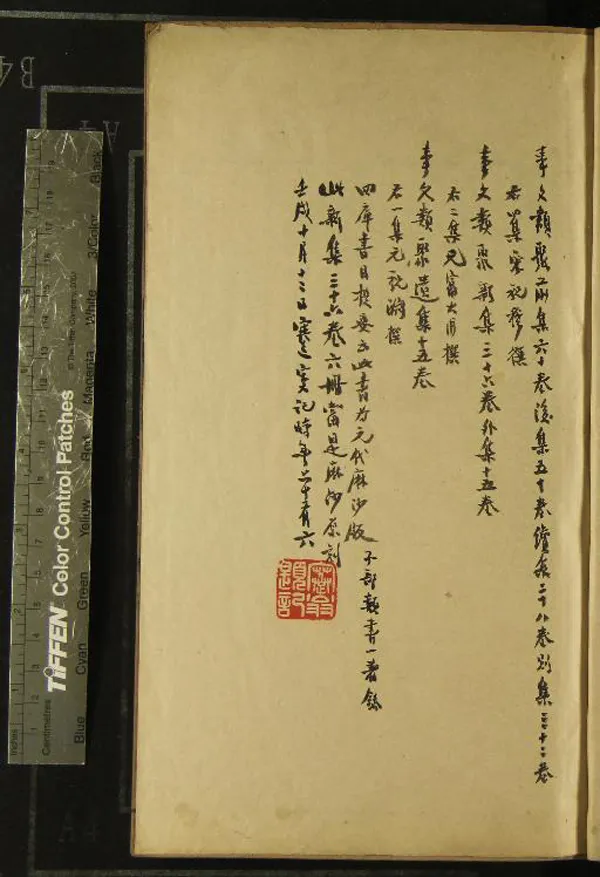 事文類聚前集六十卷後集五十卷續集二十八卷別集三十二卷
右集宋祝穆撰
事文類聚新集三十六卷外集十五卷
右二集元富大用撰
事文類聚遺集十五卷
右一集元祝淵撰
四庫書目提要云此書为元代麻沙版 子部類書一著錄
此新集三十六卷六冊當是麻沙原刻
壬戌十月十二日記時年六十有六
TIFFEN Color Control Patches
Blue Cyan Green Yellow Red Magenta White 3/Color Black
Inches
Centimetres
B4
A4